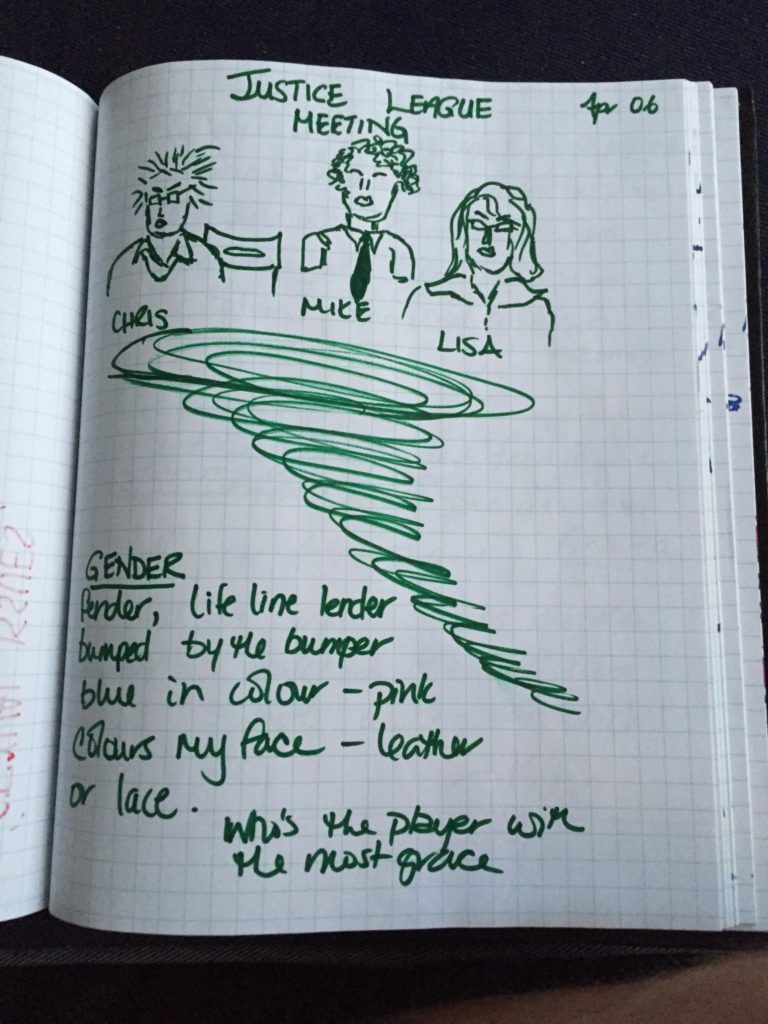 JUSTICE LEAGUE
MEETING
Apr 06
CHRIS
MIKE
LISA
GENDER
fender, life line lender
bumped by the bumper
blue in colour - pink
colours my face - leather
or lace.
who's the player with
the most grace